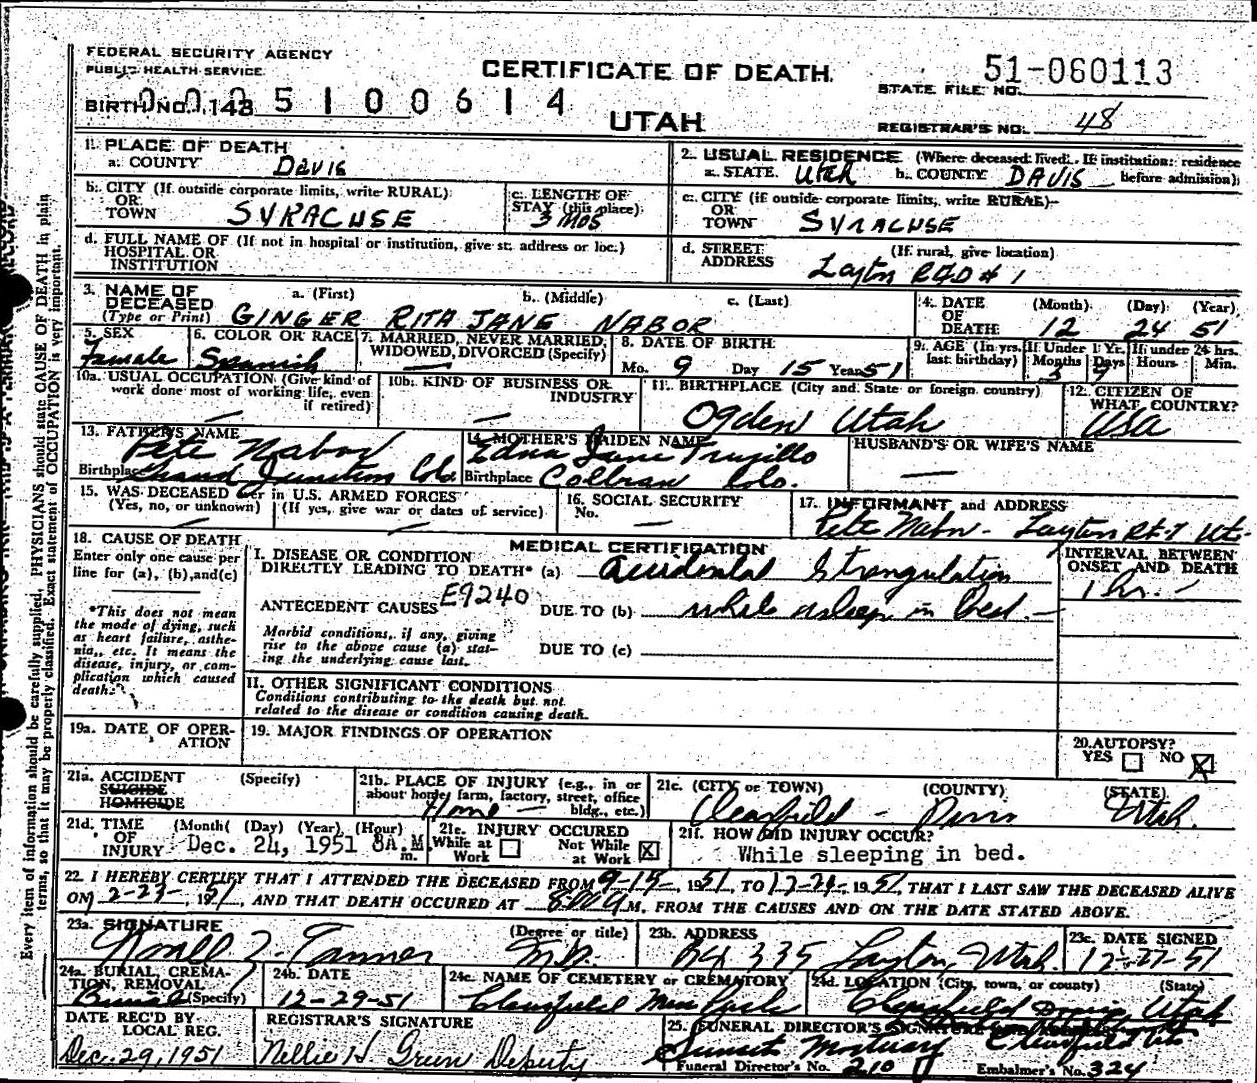 FEDERAL SECURITY AGENCY
PUBLIC HEALTH SERVICE
CERTIFICATE OF DEATH
51-060113
STATE FILE NO.
BIRTH NO. 143
0005100614
UTAH
REGISTRAR'S NO. 48
1. PLACE OF DEATH
a. COUNTY Davis
2. USUAL RESIDENCE (Where deceased lived. If institution: residence before admission).
a. STATE Utah b. COUNTY DAVIS
b. CITY (If outside corporate limits, write RURAL) OR TOWN SYRACUSE
c. LENGTH OF STAY (this place) 3 mos
c. CITY (if outside corporate limits, write RURAL) OR TOWN SYRACUSE
d. FULL NAME OF (If not in hospital or institution, give st. address or loc.) HOSPITAL OR INSTITUTION
d. STREET ADDRESS (If rural, give location) Layton RFD # 1
3. NAME OF DECEASED (Type or Print) a. (First) b. (Middle) c. (Last)
GINGER RITA JANE NABOR
4. DATE OF DEATH (Month) (Day) (Year)
12 24 51
5. SEX Female
6. COLOR OR RACE Spanish
7. MARRIED, NEVER MARRIED, WIDOWED, DIVORCED (Specify) —
8. DATE OF BIRTH
Mo. 9 Day 15 Year 51
9. AGE (In yrs. last birthday) If Under 1 Yr. Months 3 Days 9 If under 24 hrs. Hours Min.
10a. USUAL OCCUPATION (Give kind of work done most of working life, even if retired) —
10b. KIND OF BUSINESS OR INDUSTRY —
11. BIRTHPLACE (City and State or foreign country) Ogden Utah
12. CITIZEN OF WHAT COUNTRY? USA
13. FATHER'S NAME Pete Nabor
Birthplace Grand Junction Colo
14. MOTHER'S MAIDEN NAME Edna Jane Trujillo
Birthplace Collbran Colo.
HUSBAND'S OR WIFE'S NAME —
15. WAS DECEASED Ever in U.S. ARMED FORCES
(Yes, no, or unknown) (If yes, give war or dates of service)
16. SOCIAL SECURITY No. —
17. INFORMANT and ADDRESS
Pete Nabor - Layton Rt-1 Ut-
18. CAUSE OF DEATH
Enter only one cause per line for (a), (b), and (c)
*This does not mean the mode of dying, such as heart failure, asthenia, etc. It means the disease, injury, or complication which caused death.
MEDICAL CERTIFICATION
I. DISEASE OR CONDITION DIRECTLY LEADING TO DEATH* (a) Accidental Strangulation
INTERVAL BETWEEN ONSET AND DEATH
1 hr. -
ANTECEDENT CAUSES E9240
DUE TO (b) while asleep in bed. -
Morbid conditions, if any, giving rise to the above cause (a) stating the underlying cause last.
DUE TO (c)
II. OTHER SIGNIFICANT CONDITIONS
Conditions contributing to the death but not related to the disease or condition causing death.
19a. DATE OF OPERATION
19. MAJOR FINDINGS OF OPERATION
20. AUTOPSY?
YES NO
21a. ACCIDENT (Specify)
SUICIDE
HOMICIDE
21b. PLACE OF INJURY (e.g., in or about home, farm, factory, street, office bldg., etc.) Home —
21c. (CITY or TOWN) (COUNTY) (STATE)
Clearfield - Davis Utah.
21d. TIME OF INJURY (Month) (Day) (Year) (Hour) m.
Dec. 24, 1951 8A.M.
21e. INJURY OCCURED
While at Work Not While at Work
21f. HOW DID INJURY OCCUR?
While sleeping in bed.
22. I HEREBY CERTIFY THAT I ATTENDED THE DECEASED FROM 9-15-, 1951, TO 12-24-, 1951, THAT I LAST SAW THE DECEASED ALIVE
ON 2-23-, 1951, AND THAT DEATH OCCURED AT M, FROM THE CAUSES AND ON THE DATE STATED ABOVE.
23a. SIGNATURE (Degree or title)
Tanner M.D.
23b. ADDRESS
Bx 335 Layton, Utah.
23c. DATE SIGNED
12-27-51
24a. BURIAL, CREMATION, REMOVAL (Specify) Burial
24b. DATE
12-29-51
24c. NAME OF CEMETERY or CREMATORY
Clearfield
24d. LOCATION (City, town, or county) (State)
Clearfield Davis Utah
DATE REC'D BY LOCAL REG.
Dec. 29, 1951
REGISTRAR'S SIGNATURE
Nellie H. Green Deputy
25. FUNERAL DIRECTOR'S SIGNATURE
Sunset Mortuary Clearfield Ut
Funeral Director's No. 210 Embalmer's No. 324
Every item of information should be carefully supplied. PHYSICIANS should state CAUSE OF DEATH in plain
terms, so that it may be properly classified. Exact statement of OCCUPATION is very important.